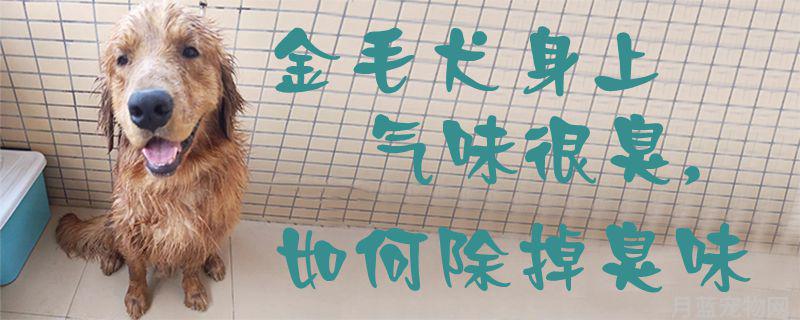 金毛犬身上
气味很臭，
如何除掉臭味
月蓝宠物网